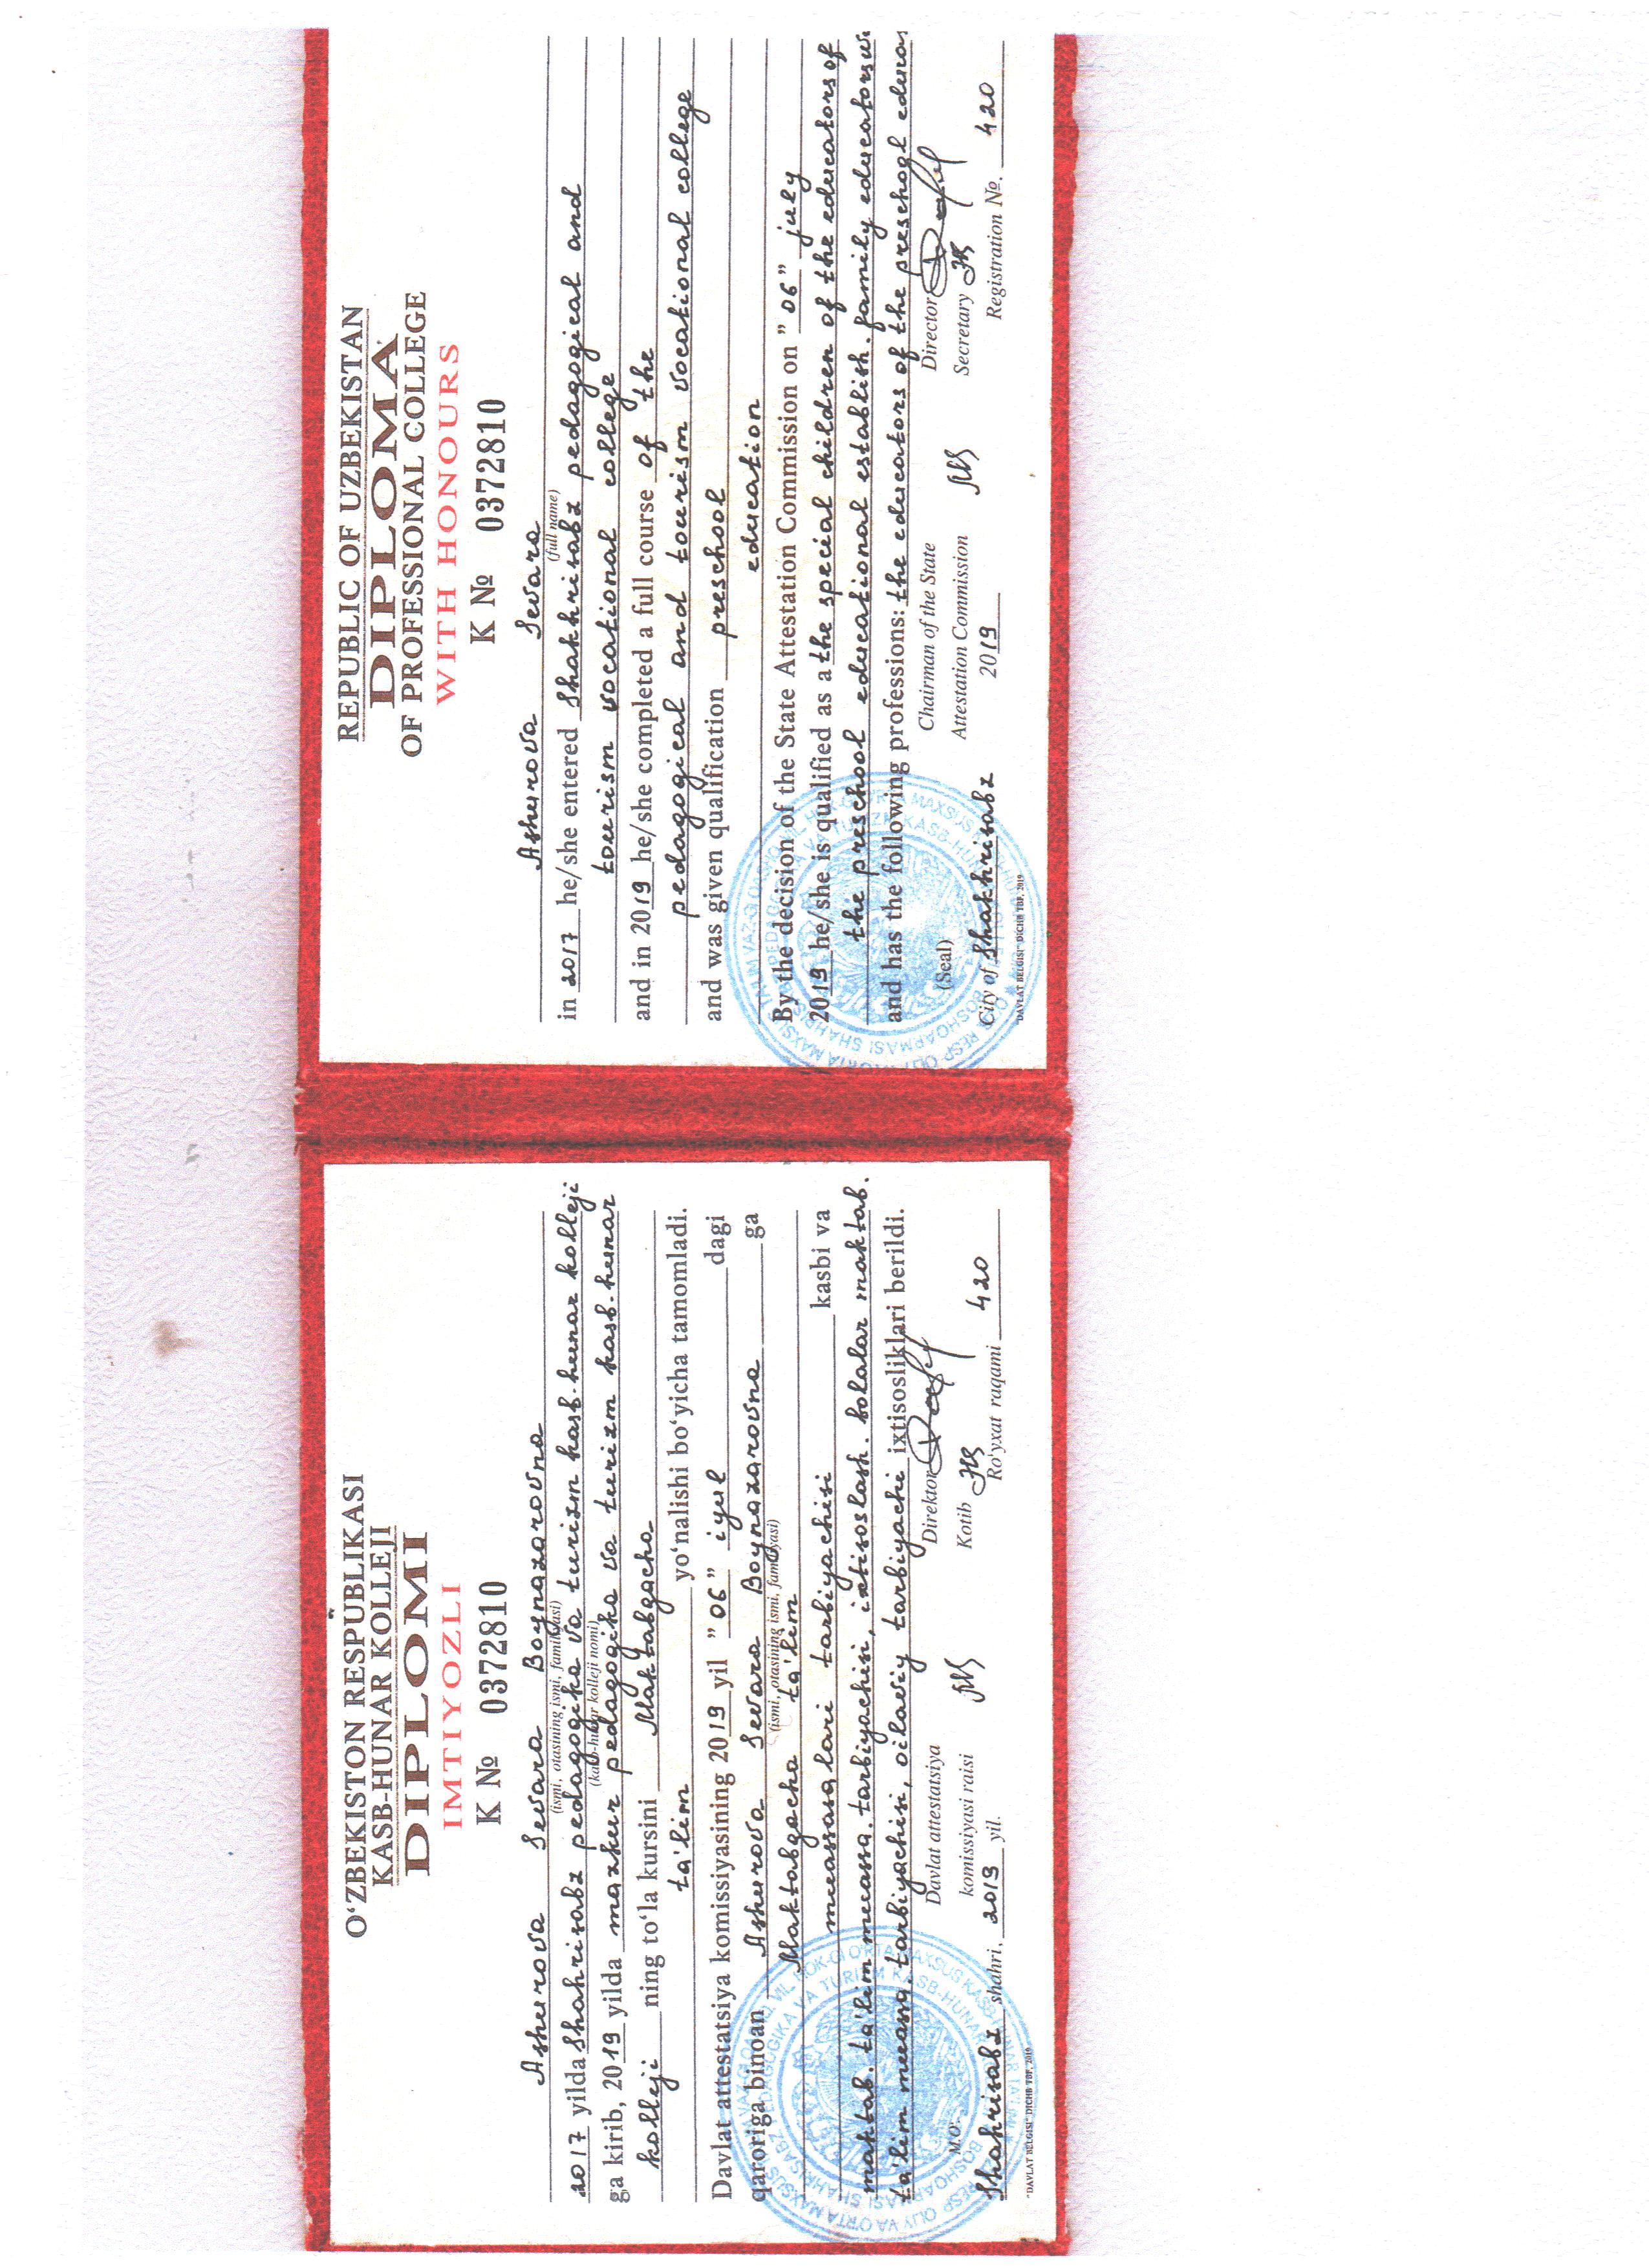 O‘ZBEKISTON RESPUBLIKASI
KASB-HUNAR KOLLEJI
DIPLOMI
IMTIYOZLI
K № 0372810
Ashurova Sevara Boynazarovna
(ismi, otasining ismi, familiyasi)
2017 yilda Shahrisabz pedagogika va turizm kasb-hunar kolleji
(kasb-hunar kolleji nomi)
ga kirib, 2019 yilda mazkur pedagogika va turizm kasb-hunar
kolleji ning to‘la kursini Maktabgacha
ta'lim yo‘nalishi bo‘yicha tamomladi.
Davlat attestatsiya komissiyasining 2019 yil "06" iyul dagi
qaroriga binoan Ashurova Sevara Boynazarovna ga
(ismi, otasining ismi, familiyasi)
Maktabgacha ta'lim
muassasalari tarbiyachisi kasbi va
maktab. ta'lim muassa. tarbiyachisi, ixtisoslash. bolalar maktab.
ta'lim muassa. tarbiyachisi, oilaviy tarbiyachi ixtisosliklari berildi.
M.O‘.
Davlat attestatsiya
komissiyasi raisi
Direktor
Kotib
Shahrisabz shahri, 2019 yil.
Ro‘yxat raqami 420
"DAVLAT BELGISI" DICHB TBF. 2019
REPUBLIC OF UZBEKISTAN
DIPLOMA
OF PROFESSIONAL COLLEGE
WITH HONOURS
K № 0372810
Ashurova Sevara
(full name)
in 2017 he/she entered Shakhrisabz pedagogical and
tourism vocational college
and in 2019 he/she completed a full course of the
pedagogical and tourism vocational college
and was given qualification preschool
education
By the decision of the State Attestation Commission on "06" july
2019 he/she is qualified as a the special children of the educators of
the preschool educational establish. family educators
and has the following professions: the educators of the preschool
(Seal)
Chairman of the State
Attestation Commission
Director
Secretary
City of Shakhrisabz 2019
Registration №. 420
"DAVLAT BELGISI" DICHB TBF. 2019